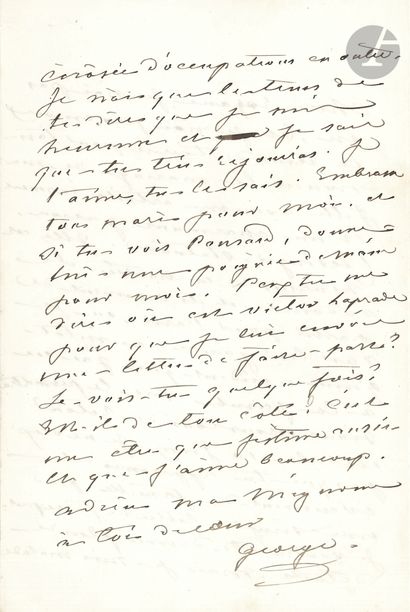 écrasée d'occupations en outre.
Je n'ai que le tems de
te dire que je suis
heureuse et je sais
que tu t'en réjouiras. Je
t'aime, tu le sais. Embrasse
ton mari pour moi. et
si tu vois Ponsard, donne
lui une poignée de main
pour moi. Peux tu me
dire où est Victor Laprade
pour que je lui envoie
une lettre de faire-part?
Le vois-tu quelque fois?
Est-il de ton côté? C'est
un être que j'estime aussi
et que j'aime beaucoup.
adieu ma mignonne
à toi de cœur
George